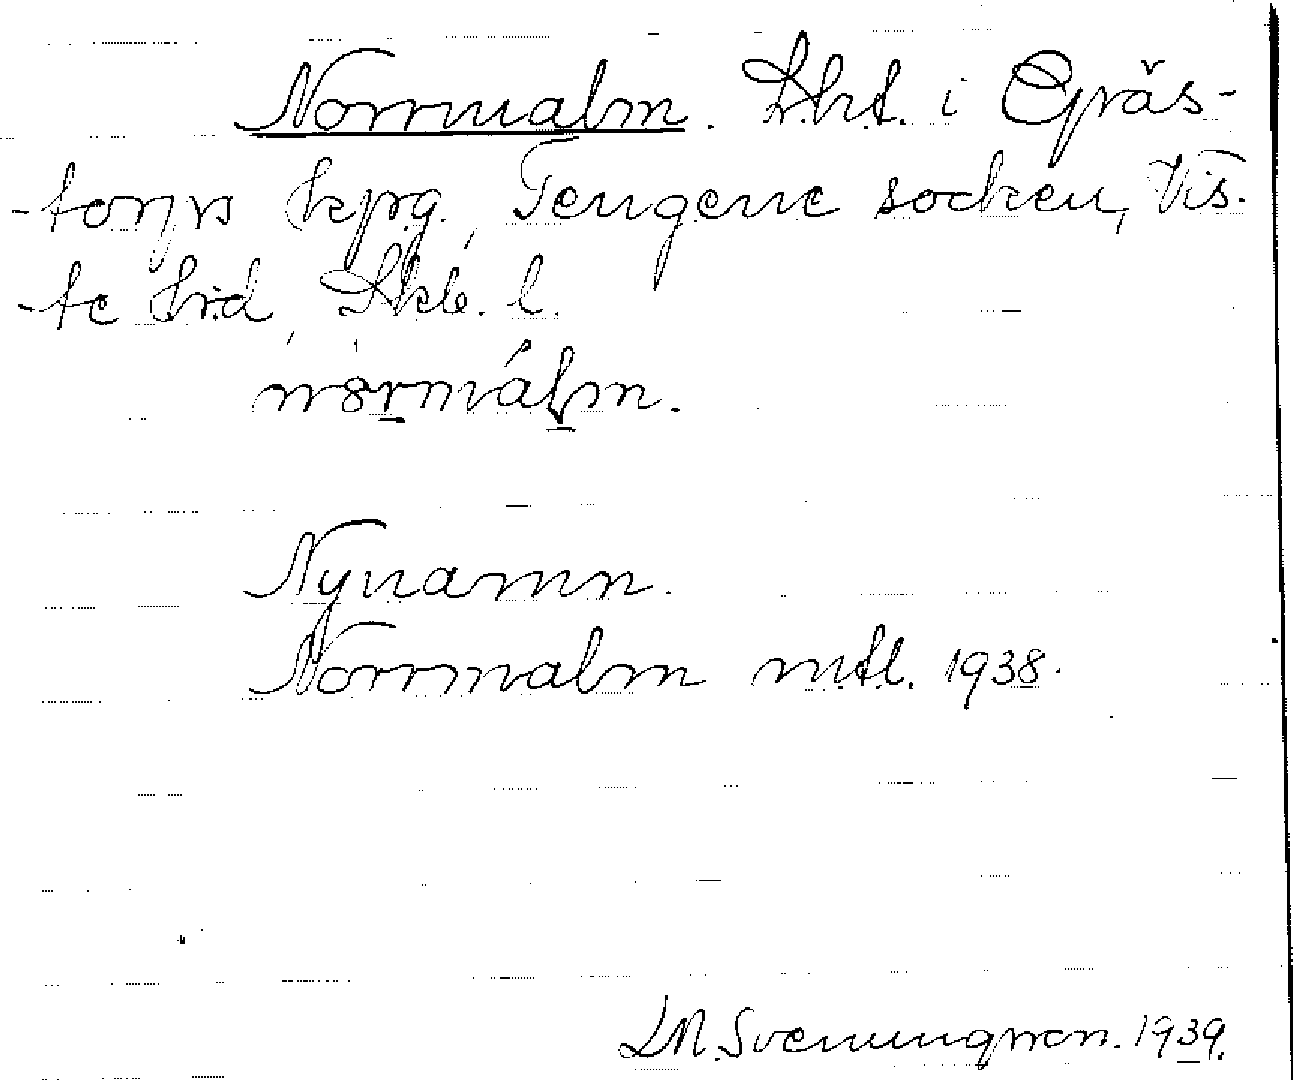 Norrmalm. Lht. i Gräs-
-torps kpg., Tengene socken, Vis-
-te hrd, Skb. l.
nȯrmálm.
Nynamn.
Norrmalm mtl. 1938.
Svenungsson. 1939.